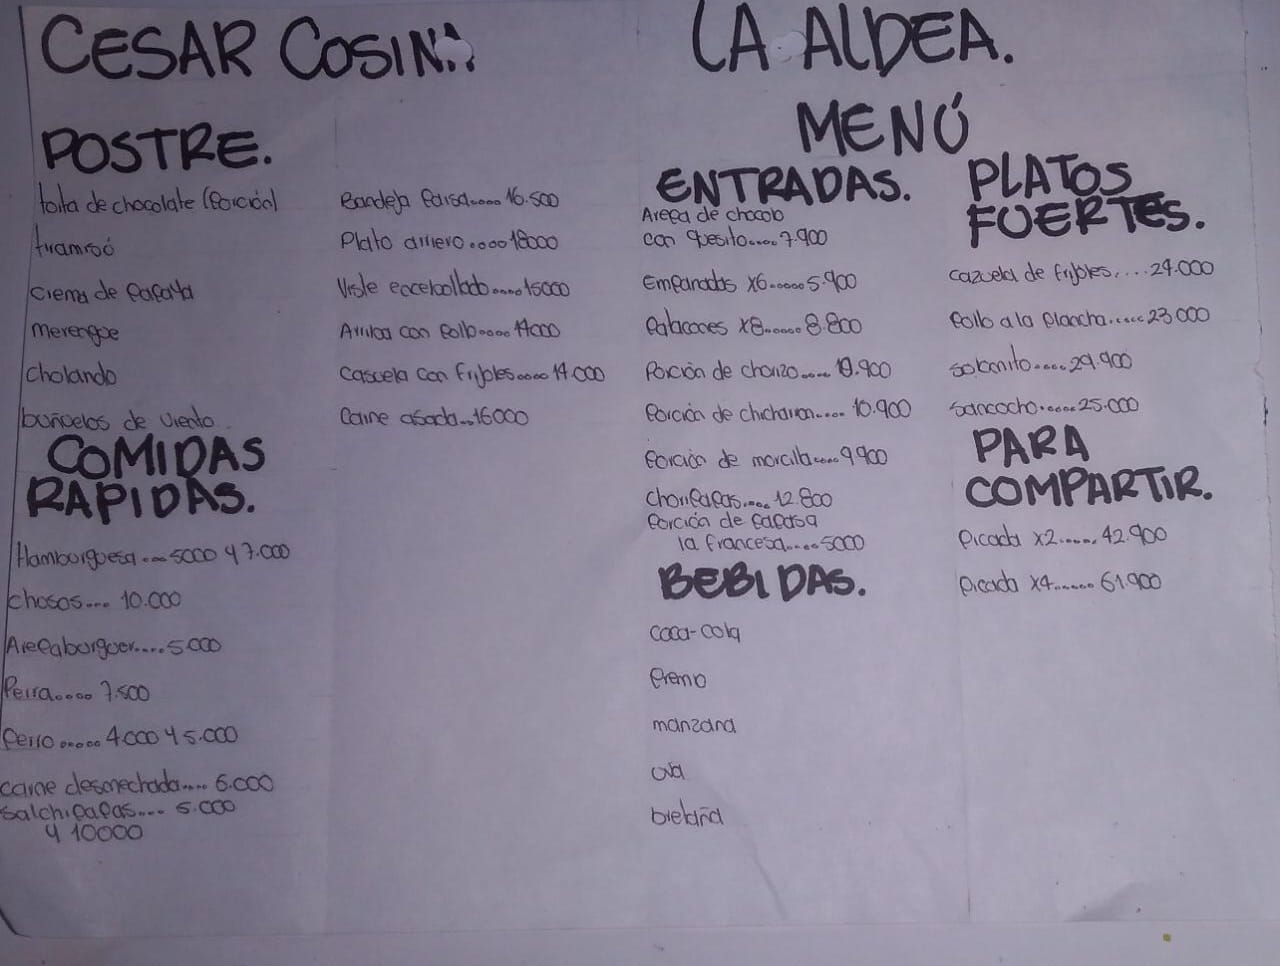 CESAR COSINA
POSTRE.
torta de chocolate (porción)
tiramisó
crema de papaya
merengue
cholando
buñuelos de viento
COMIDAS
RAPIDAS.
Hamburguesa....5000 y 7.000
chosos.... 10.000
Arepaburguer.....5.000
Perra..... 7.500
perro ...... 4.000 y 5.000
carne desmechada..... 6.000
salchipapas.... 5.000
y 10000
Bandeja Paisa..... 16.500
Plato arriero.....18000
Viste encebollado.....15000
Arriba con pollo.....
Casuela con frijoles.....14.000
Carne asada...16000
LA ALDEA.
MENÚ
ENTRADAS.
Arepa de chocolo
con quesito.....7.900
Empanadas x6......5.900
Patacones x8......8.800
Porción de chorizo.....
Porción de chicharron..... 10.900
Porción de morcilla.....9.900
Choripapas..... 12.800
Porción de papas a
la francesa.....5000
BEBIDAS.
coca-cola
Premio
manzana
uva
bretaña
PLATOS
FUERTES.
cazuela de frijoles.....24.000
Pollo a la plancha......23.000
solomito.....29.900
sancocho......25.000
PARA
COMPARTIR.
Picada x2......42.900
Picada x4...... 61.900